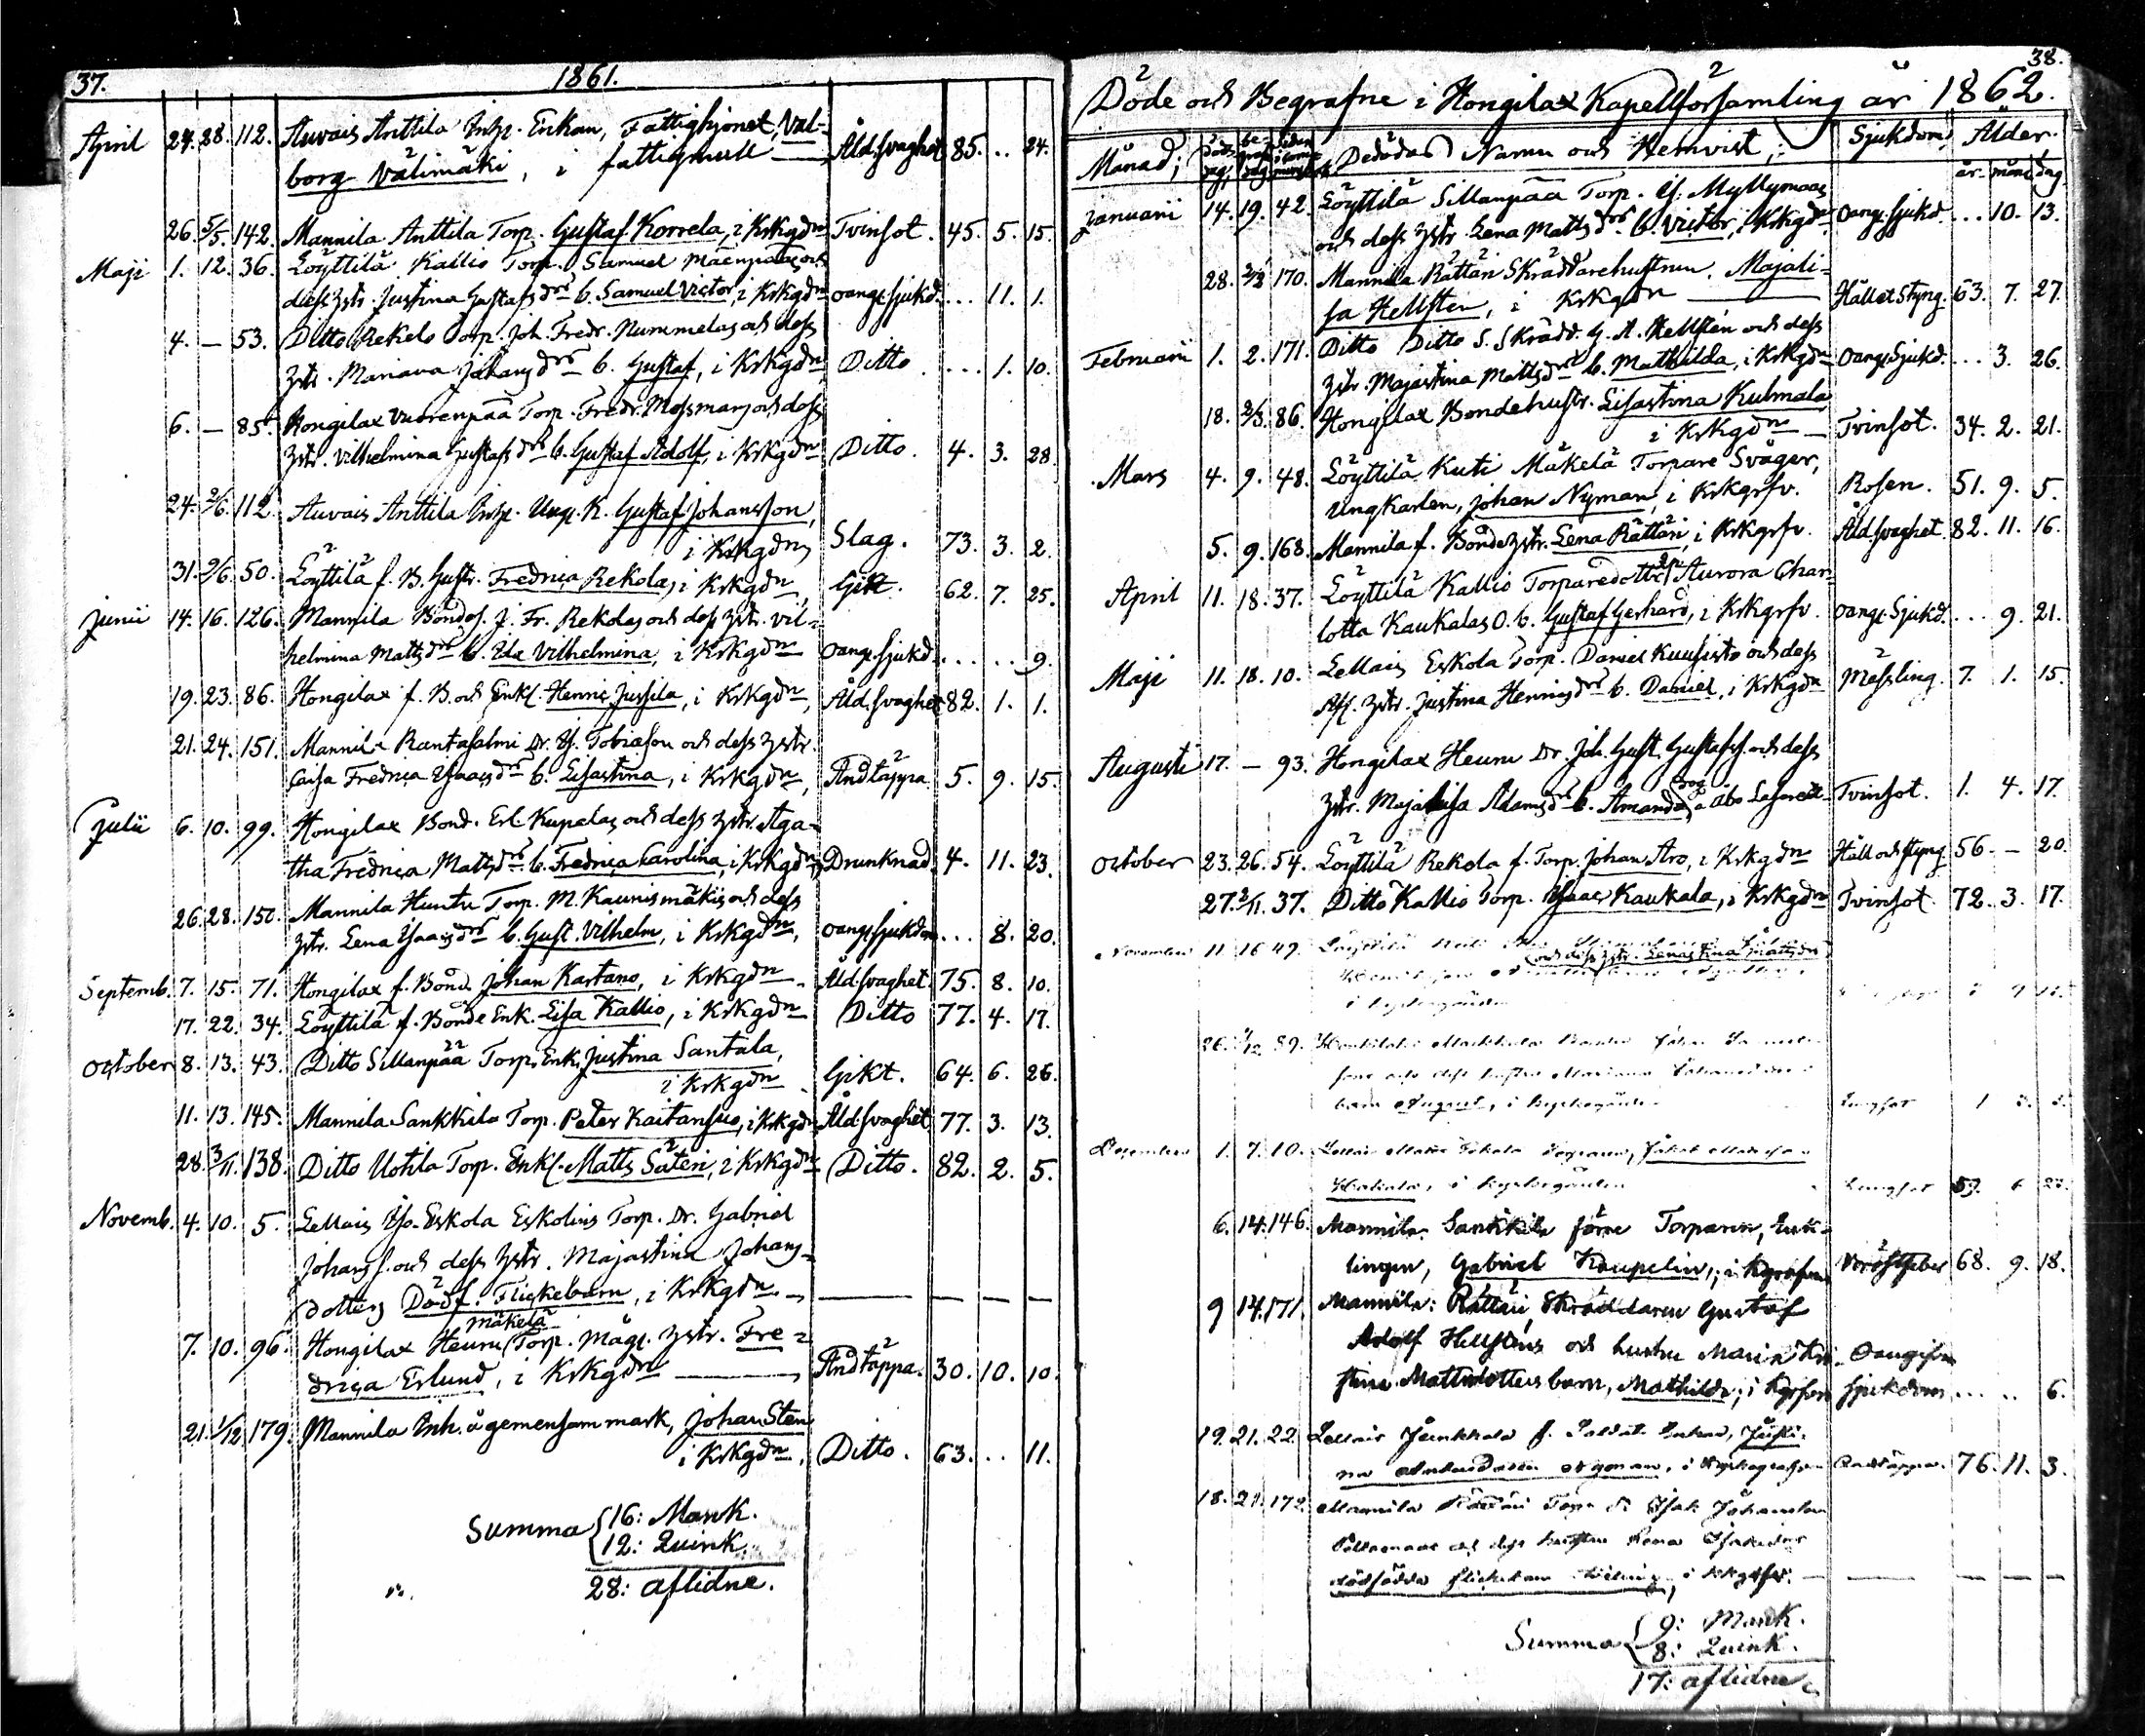 37. 1861.
April 24. 28. 112. Auvais Anttila Inhy. Enkan, Fattighjonet, Val-
borg Välimäki, i fattigmull — Åld.svaghet 85. .. 24.
26. 5/5. 142. Mannila Anttila Torp. Gustaf Korrela, i Krkgdn Tvinsot. 45. 5. 15.
Maji 1. 12. 36. Löyttilä Kallio Torp. Samuel Mäenpääs och
dess hstr. Justina Gustafsdrs b. Samuel Victor, i Krkgdn oang. sjukd. ... 11. 1.
4. — 53. Ditto Rekelo Torp. Joh. Fredr. Nummelas och dess
hstr. Mariana Johansdrs b. Gustaf, i Krkgdn Ditto ... 1. 10.
6. — 85. Hongilax Vuorenpää Torp. Fredr. Mossmans och dess
hstr. Vilhelmina Gustafsdrs b. Gustaf Adolf, i Krkgdn Ditto. 4. 3. 28.
24. 2/6. 112. Auvais Anttila Inhy. Ung. K. Gustaf Johansson,
i Krkgdn, Slag. 73. 3. 2.
31. 9/6. 50. Löyttilä f. B. hustr. Fredrica Rekola, i Krkgdn, Gikt. 62. 7. 25.
Junii 14. 16. 126. Mannila Bondes. J. Fr. Rekolas och dess hstr. Vil-
helmina Mattsdrs b. Ida Vilhelmina, i Krkgdn oang. sjukd. .... 9.
19. 23. 86. Hongilax f. B. och Enkl. Henric Jussila, i Krkgdn, Åld.svaghet 82. 1. 1.
21. 24. 151. Mannila Rantasalmi Dr. Is. Tobiasson och dess hstr.
Caisa Fredrica Isaacsdrs b. Lisastina, i Krkgdn, Andtäppa 5. 9. 15.
Julii 6. 10. 99. Hongilax Bond. Erl. Kupalas och dess hstr. Aga-
tha Fredrica Mattsdrs b. Fredrica Carolina, i Krkgdn, Drunknad. 4. 11. 23.
26. 28. 150. Mannila Huntu Torp. M. Kaunismäkis och dess
hstr. Lena Isaacsdrs b. Gust. Vilhelm, i Krkgdn, oang. sjukdom ... 8. 20.
Septemb. 7. 15. 71. Hongilax f. Bond. Johan Kartano, i Krkgdn. Åld.svaghet. 75. 8. 10.
17. 22. 34. Löyttilä f. Bonde Enk. Lisa Kallio, i Krkgdn Ditto 77. 4. 17.
October 8. 13. 43. Ditto Sillanpää Torp. Enk. Justina Santala,
i Krkgdn. Gikt. 64. 6. 26.
11. 13. 145. Mannila Sankkila Torp. Peter Kaitansuo, i Krkgdn Åld.svaghet. 77. 3. 13.
28. 3/11. 138. Ditto Uotila Torp. Enkl. Matts Säteri, i Krkgdn Ditto. 82. 2. 5.
Novemb. 4. 10. 5. Lellais Yso-Eskola Eskolins Torp. Dr. Gabriel
Johanss. och dess hstr. Majastina Johans-
dotters Dödf. Flickebarn, i Krkgdn — — — —
mäkelä
7. 10. 96. Hongilax Heuru Torp. Mågs hstr. Fre-
drica Erlund, i Krkgdn — Andtäppa. 30. 10. 10.
21. 1/12 179. Mannila Inh. å gemensam mark, Johan Sten
i Krkgdn, Ditto. 63. .. 11.
Summa 16: Mank.
12: Quink.
28: aflidne.
38.
Döde och Begrafne i Hongilax Kapellförsamling år 1862.
Månad; Dedödas Namn och Hemvist; Sjukdom; Ålder;
år. mån. dag.
Januarii 14. 19. 42. Löyttilä Sillanpää Torp. Is. Myllymaas
och dess hstr. Lena Mattsdrs b. Victor, i Krkgdn oang. sjukd. ... 10. 13.
28. 170. Mannila Rättäri Skräddarehustrun. Majali-
sa Hellsten, i Krkgdn — Håll et Styng. 63. 7. 27.
Februarii 1. 2. 171. Ditto Ditto S. Skrädd. G. A. Hellstén och dess
hstr. Majastina Mattsdrs b. Mathilda, i Krkgdn oang. Sjukd. ... 3. 26.
18. 2/3. 86. Hongilax Bondehustr. Lisastina Kulmala
i Krkgdn — Tvinsot. 34. 2. 21.
Mars 4. 9. 48. Löyttilä Kuti Mäkelä Torpare Svåger,
Ungkarlen, Johan Nyman, i Krkgrfv. Rosen. 51. 9. 5.
5. 9. 168. Mannila f. Bondehstr. Lena Rättäri, i Krkgrfv. Åld.svaghet. 82. 11. 16.
April 11. 18. 37. Löyttilä Kallio Torparedottr. Aurora Char-
lotta Kaukalas O. b. Gustaf Gerhard, i Krkgrfv. oang. Sjukd. ... 9. 21.
Maji 11. 18. 10. Lellais Eskola Torp. Daniel Kuusisto och dess
Afl. hstr. Justina Henricsdrs b. Daniel, i Krkgdn Mässling. 7. 1. 15.
Augusti 17. — 93. Hongilax Heuru Dr. Joh. Gust. Gustafss. och dess
hstr. Majalisa Adamsdrs b. Amanda, dog å Åbo Lasarett. Tvinsot. 1. 4. 17.
October 23. 26. 54. Löyttilä Rekola f. Torp. Johan Aro, i Krkgdn Håll och styng 56. — 20.
27. 2/11. 37. Ditto Kallio Torp. Isaac Kaukala, i Krkgdn Tvinsot. 72. 3. 17.
November 11 16 49. Löyttilä
och dess hstr. Lenastina Mattsdrs
i kyrkogården
26. 1/12 89.
barn August, i kyrkogården Lungsot 1
December 1. 7. 10. Lellais
i kyrkogården Lungsot 6
6. 14. 146. Mannila Sankkila förre Torparen, Enk-
lingen, Gabriel Kaupelin, i Kgrafven Bröstfeber 68. 9. 18.
9 14. 171. Mannila: Rättäri, Skräddaren Gustaf
Adolf Hellstens och hustru Maria Kri-
stina Mattsdotters barn, Mathilda, i Kgrfven Oangifven sjukdom .... 6.
19. 21. 22. Lellais f. Soldat Enkan, Justi-
na Nyman, i Kyrkografven Andtäppa. 76. 11. 3.
18. 21. 172. Mannila Rättäri Torp. Dr. Isak Johansson
och dess hustru Lena
dödfödda flickebarn i Krkgrfv. — — — —
Summa 9: Mank.
8: Quink.
17: aflidne